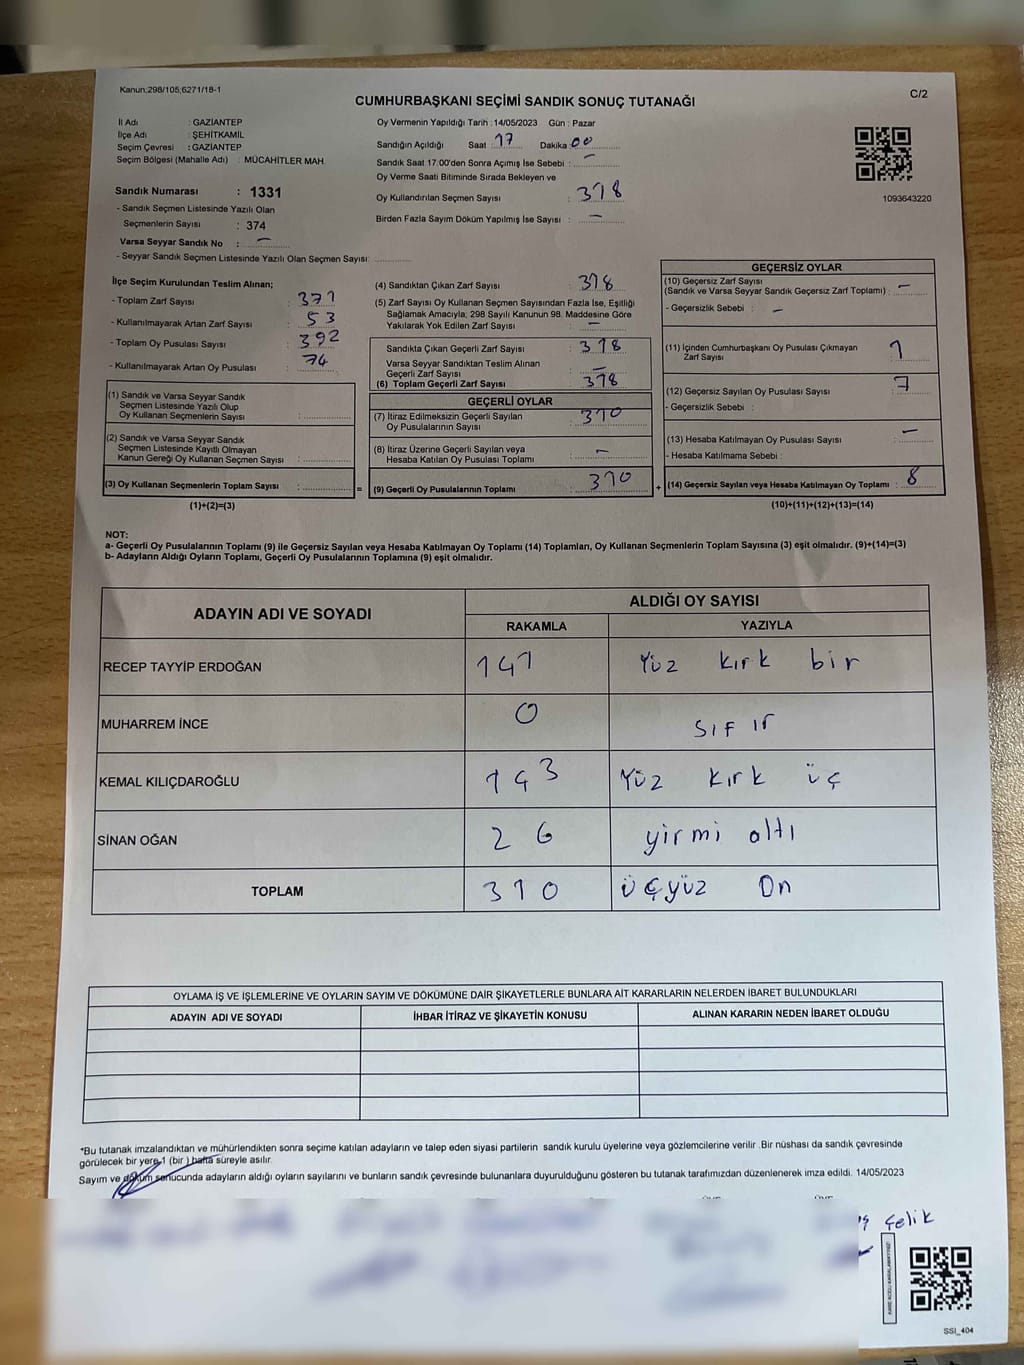 Kanun;298/105;6271/18-1
C/2
CUMHURBAŞKANI SEÇİMİ SANDIK SONUÇ TUTANAĞI
İl Adı : GAZİANTEP
İlçe Adı : ŞEHİTKAMİL
Seçim Çevresi : GAZİANTEP
Seçim Bölgesi (Mahalle Adı) : MÜCAHİTLER MAH.
Sandık Numarası : 1331
- Sandık Seçmen Listesinde Yazılı Olan
Seçmenlerin Sayısı : 374
Varsa Seyyar Sandık No : —
- Seyyar Sandık Seçmen Listesinde Yazılı Olan Seçmen Sayısı:
Oy Vermenin Yapıldığı Tarih : 14/05/2023 Gün : Pazar
Sandığın Açıldığı Saat : 17 Dakika : 00
Sandık Saat 17:00'den Sonra Açımış İse Sebebi : —
Oy Verme Saati Bitiminde Sırada Bekleyen ve
Oy Kullandırılan Seçmen Sayısı : 318
Birden Fazla Sayım Döküm Yapılmış İse Sayısı : —
1093643220
İlçe Seçim Kurulundan Teslim Alınan;
- Toplam Zarf Sayısı : 371
- Kullanılmayarak Artan Zarf Sayısı : 53
- Toplam Oy Pusulası Sayısı : 392
- Kullanılmayarak Artan Oy Pusulası : 74
(1) Sandık ve Varsa Seyyar Sandık
Seçmen Listesinde Yazılı Olup
Oy Kullanan Seçmenlerin Sayısı :
(2) Sandık ve Varsa Seyyar Sandık
Seçmen Listesinde Kayıtlı Olmayan
Kanun Gereği Oy Kullanan Seçmen Sayısı :
(3) Oy Kullanan Seçmenlerin Toplam Sayısı :
(1)+(2)=(3)
(4) Sandıktan Çıkan Zarf Sayısı : 318
(5) Zarf Sayısı Oy Kullanan Seçmen Sayısından Fazla İse, Eşitliği
Sağlamak Amacıyla; 298 Sayılı Kanunun 98. Maddesine Göre
Yakılarak Yok Edilen Zarf Sayısı : —
Sandıkta Çıkan Geçerli Zarf Sayısı : 318
Varsa Seyyar Sandıktan Teslim Alınan
Geçerli Zarf Sayısı : —
(6) Toplam Geçerli Zarf Sayısı : 318
GEÇERLİ OYLAR
(7) İtiraz Edilmeksizin Geçerli Sayılan
Oy Pusulalarının Sayısı : 310
(8) İtiraz Üzerine Geçerli Sayılan veya
Hesaba Katılan Oy Pusulası Toplamı : —
= (9) Geçerli Oy Pusulalarının Toplamı : 310
GEÇERSİZ OYLAR
(10) Geçersiz Zarf Sayısı
(Sandık ve Varsa Seyyar Sandık Geçersiz Zarf Toplamı) : —
- Geçersizlik Sebebi : —
(11) İçinden Cumhurbaşkanı Oy Pusulası Çıkmayan
Zarf Sayısı : 1
(12) Geçersiz Sayılan Oy Pusulası Sayısı : 7
- Geçersizlik Sebebi :
(13) Hesaba Katılmayan Oy Pusulası Sayısı : —
- Hesaba Katılmama Sebebi :
+ (14) Geçersiz Sayılan veya Hesaba Katılmayan Oy Toplamı : 8
(10)+(11)+(12)+(13)=(14)
NOT:
a- Geçerli Oy Pusulalarının Toplamı (9) ile Geçersiz Sayılan veya Hesaba Katılmayan Oy Toplamı (14) Toplamları, Oy Kullanan Seçmenlerin Toplam Sayısına (3) eşit olmalıdır. (9)+(14)=(3)
b- Adayların Aldığı Oyların Toplamı, Geçerli Oy Pusulalarının Toplamına (9) eşit olmalıdır.
ADAYIN ADI VE SOYADI ALDIĞI OY SAYISI
RAKAMLA YAZIYLA
RECEP TAYYİP ERDOĞAN 141 Yüz kırk bir
MUHARREM İNCE 0 SIFIr
KEMAL KILIÇDAROĞLU 143 Yüz kırk üç
SİNAN OĞAN 26 yirmi altı
TOPLAM 310 üçyüz On
OYLAMA İŞ VE İŞLEMLERİNE VE OYLARIN SAYIM VE DÖKÜMÜNE DAİR ŞİKAYETLERLE BUNLARA AİT KARARLARIN NELERDEN İBARET BULUNDUKLARI
ADAYIN ADI VE SOYADI İHBAR İTİRAZ VE ŞİKAYETİN KONUSU ALINAN KARARIN NEDEN İBARET OLDUĞU
*Bu tutanak imzalandıktan ve mühürlendikten sonra seçime katılan adayların ve talep eden siyasi partilerin sandık kurulu üyelerine veya gözlemcilerine verilir .Bir nüshası da sandık çevresinde
görülecek bir yere 1 (bir ) hafta süreyle asılır.
Sayım ve döküm sonucunda adayların aldığı oyların sayılarını ve bunların sandık çevresinde bulunanlara duyurulduğunu gösteren bu tutanak tarafımızdan düzenlenerek imza edildi. 14/05/2023
Çelik
SSİ_404